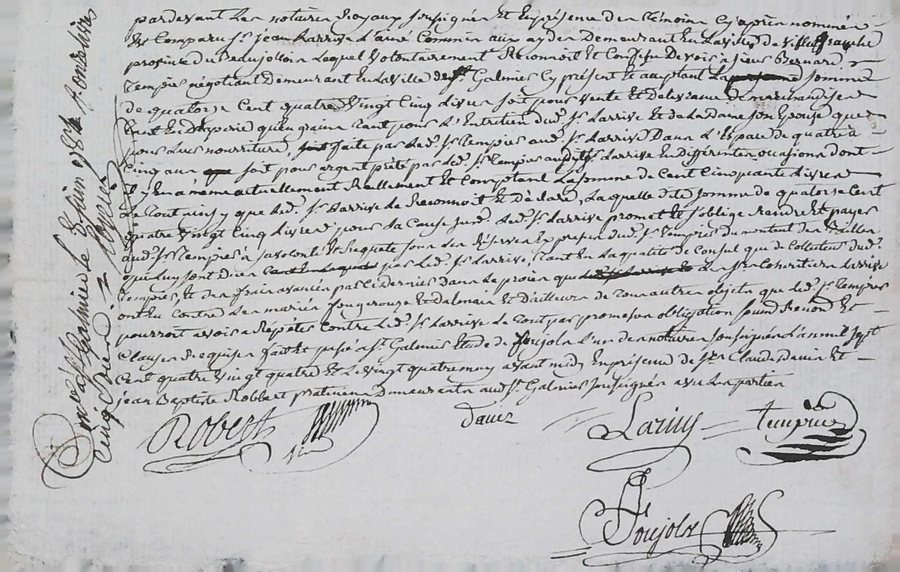 pardevant Les notaires Royaux soussignés Et En présence des témoins Cy après nommés
Est Comparu Sr. jean Larrive L'ainé Commis aux aydes Demeurant En La ville de villefranche
province de Beaujollois Lequel volontairement Reconnoit Et Confesse Devoir a sieur Bernard
Tempier négotiant Demeurant En La ville de St. Galmier Cy présent & acceptant La somme
de quatorze Cent quatre vingt Cinq Livres soit pour vente Et Delivrance de marchandises
tant En Draperie qu'en tant pour L'Entretien dud. Sr. Larrive Et de La Dame son Epouse que
pour Leur nourriture, faite par Led. Sr. Tempier aud. Sr. Larrive Dans L'Espace de quatre a
Cinq ans soit pour argent prêté par Led. Sr. Tempier aud. Sr. Larrive En différentes occasions dont
il En a même actuellement Réellement Et Comptant La somme de Cent Cinquante Livres
de tout ainsy que Led. Sr. Larrive Le Reconnoit Et Déclare, La quelle dite somme de quatorze Cent
quatre vingt Cinq Livres pour La Cause susd. Led. Sr. Larrive promet Et s'oblige Rendre Et payer
aud. Sr. Tempier a sa volonté Et Requete sous des Réserves Expresses dud. Sr. Tempier du montant des tailles
qui Luy sont Dües par Led. Sr. Larrive, tant En La qualité de Consul que de Collecteur dud.
Tempier, Et des frais avancés par Ce dernier dans Le procès que Les Srs. Cohéritiers Larrive
ont Eu Contre Les mariés fougerouse Et Dalmais Et D'ailleurs de tous autres objets que Led. Sr. Tempier
pourroit avoir a Repéter Contre Led. Sr. Larrive Le tout par promesse obligation soumission Renond. Et
Clauses Requises fait Et passé a St. Galmier Etude de Poujols L'un des notaires soussignés L'an mil sept
Cent quatre vingt quatre Et Le vingt quatre may avant midy En présence de Sr. Claude Daviez Et
jean Baptiste Robert praticiens Demeurants aud. St. Galmier soussignés avec Les parties
Robert Daviez Larive tempier
Poujols
Controllé a St. Galmier le 8 juin 1784
Cinq sols